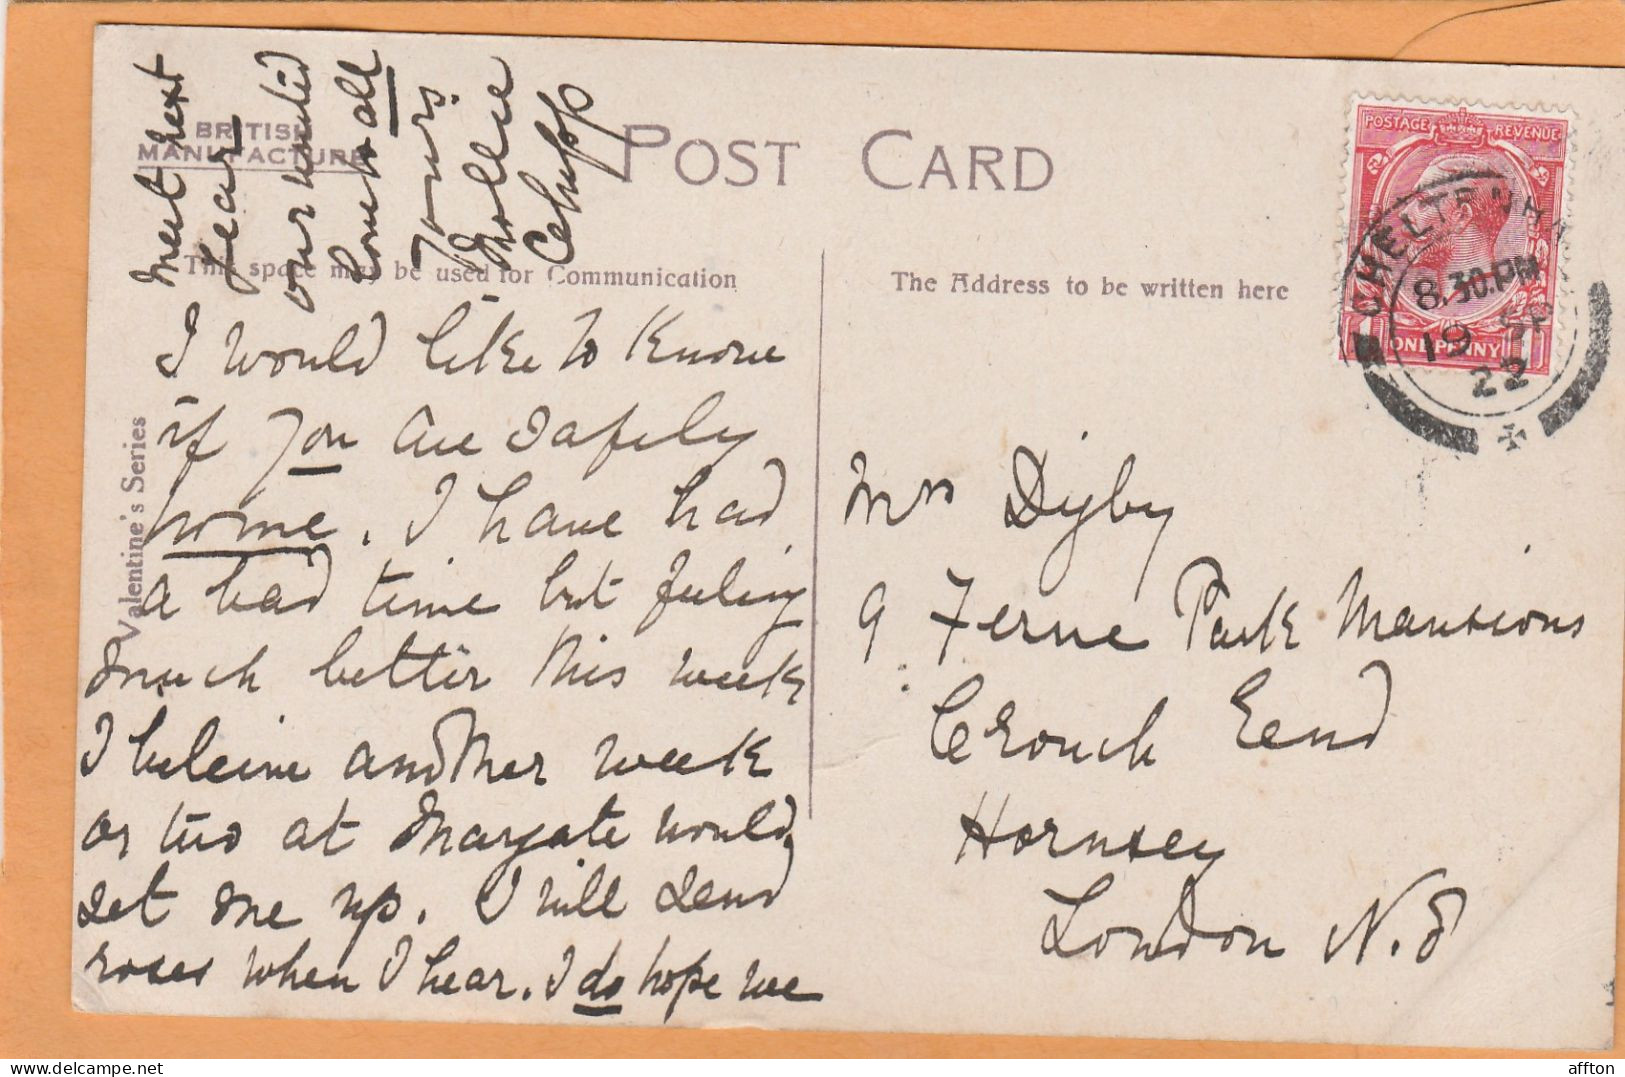 BRITISH
MANUFACTURE
POST CARD
This space may be used for Communication
The Address to be written here
Valentine's Series
POSTAGE REVENUE
ONE PENNY
CHELTENHAM
8.30.PM
19 SP
22
I would like to know
if you are safely
home. I have had
a bad time but feeling
much better this week
I beleive another week
or two at Margate would
set me up. I will send
roses when I hear. I do hope we
meet next
year
our united
love to all
Yours
Mollie
Mrs Digby
9 Ferne Park Mansions
Crouch End
Hornsey
London N.8
delcampe.net
affton